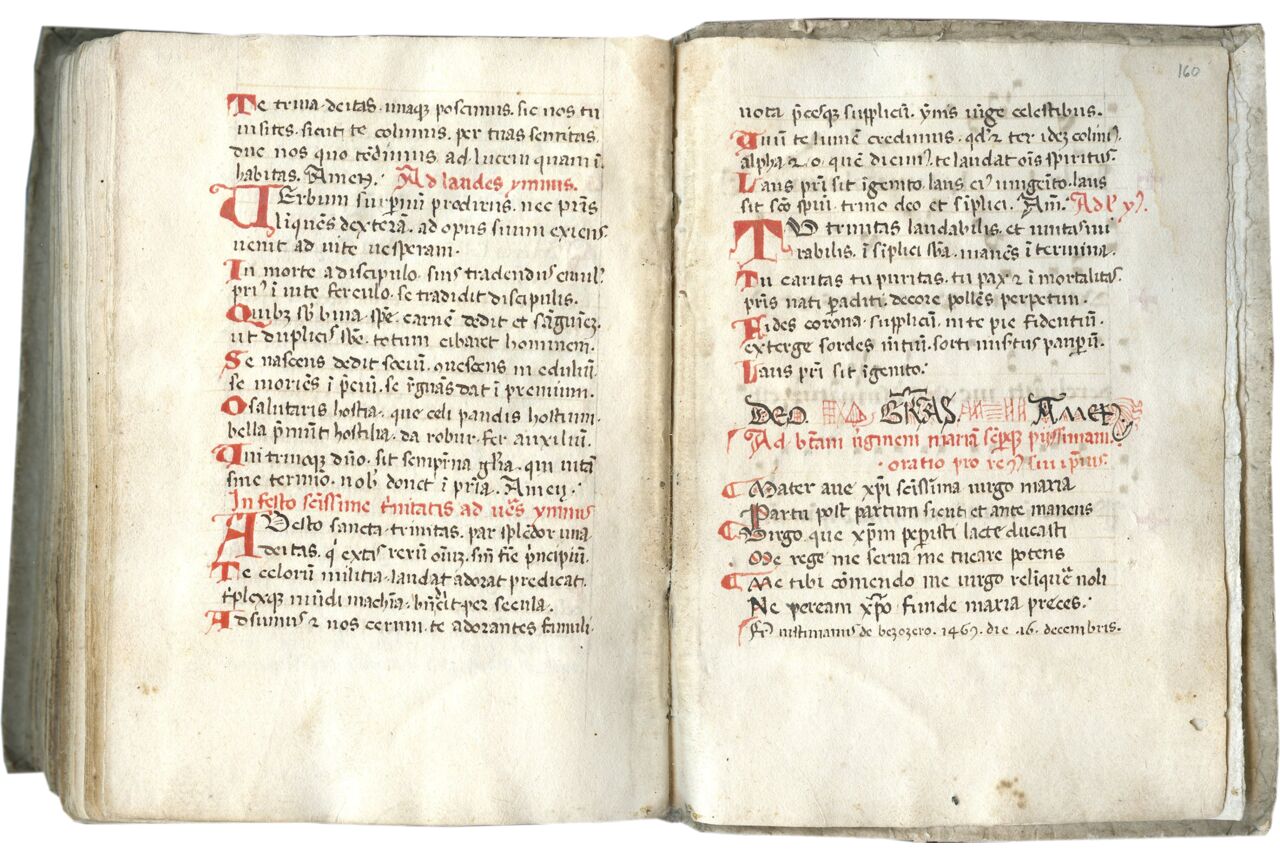 Te trina deitas. unaqz poscimus. sic nos tu
uisites. sicut te colimus. per tuas semitas.
duc nos quo tēdimus. ad lucem quam ī.
habitas. Amen. Ad laudes ymnus.
Uerbum supnū prodiens. nec pr̄is
liquens dexterā. ad opus suum exiens.
uenit ad uite uesperam.
In morte a discipulo. suis tradendus emul.
pri9 ī uite ferculo. se tradidit discipulis.
Quibz sb bina spē. carnē dedit et sāguinez.
ut duplicis sbē. totum cibaret hominem.
Se nascens dedit sociū. conuescens in eduliū
se moriēs ī pciū. se rēgnās dat ī premium.
O salutaris hostia. que celi pandis hostium.
bella pmunt hostilia. da robur. fer auxiliū.
Uni trinoqz dno. sit sempitna glria. qui uitā
sine termio. nobis donet ī pria. Amen.
In festo scissime trinitatis ad ues ymnus
Adesto sancta trinitas. par splēdor una
deitas. q extis rerū omīuz. sin fie pncipiū.
Te celorū militia. laudat adorat predicat.
tplexqz mūdi machīa. bndicit per secula.
Adsumus et nos cernui. te adorantes famuli.
160
uota pcesqz supplicū. ymis iūge celestibus.
Unū te lumē credimus. qd et ter idez colim9.
alpha et o. quē dicim9. te laudat oīs spiritus.
Laus pri sit īgenito. laus ei9 unigeīto. laus
sit sco spui. trino deo et sīplici. Am. Ad l y.
Tu trinitas laudabilis. et unitas mi
rabilis. ī simplici sba. manēs ī termina.
Tu caritas tu puritas. tu pax et ī mortalitas.
pris nati paditi. decore pollēs perpetim.
Fides corona supplicū. in te pie fidentiū.
exterge sordes mētiū. sorti mistus paupū.
Laus pri sit īgenito.
DEO. GRAS. AMEN.
Ad btam uginem mariā sepqz piissimam.
oratio pro
Mater aue xpi scissima uirgo maria
Partu post partum sicut et ante manens
Virgo que xpm peperisti lacte ducasti
Me rege me serua me tueare potens
Me tibi cōmendo me uirgo relique noli
Ne peream xpo funde maria preces.
Fr iustinianus de bezozero. 1467. die. 16. decembris.